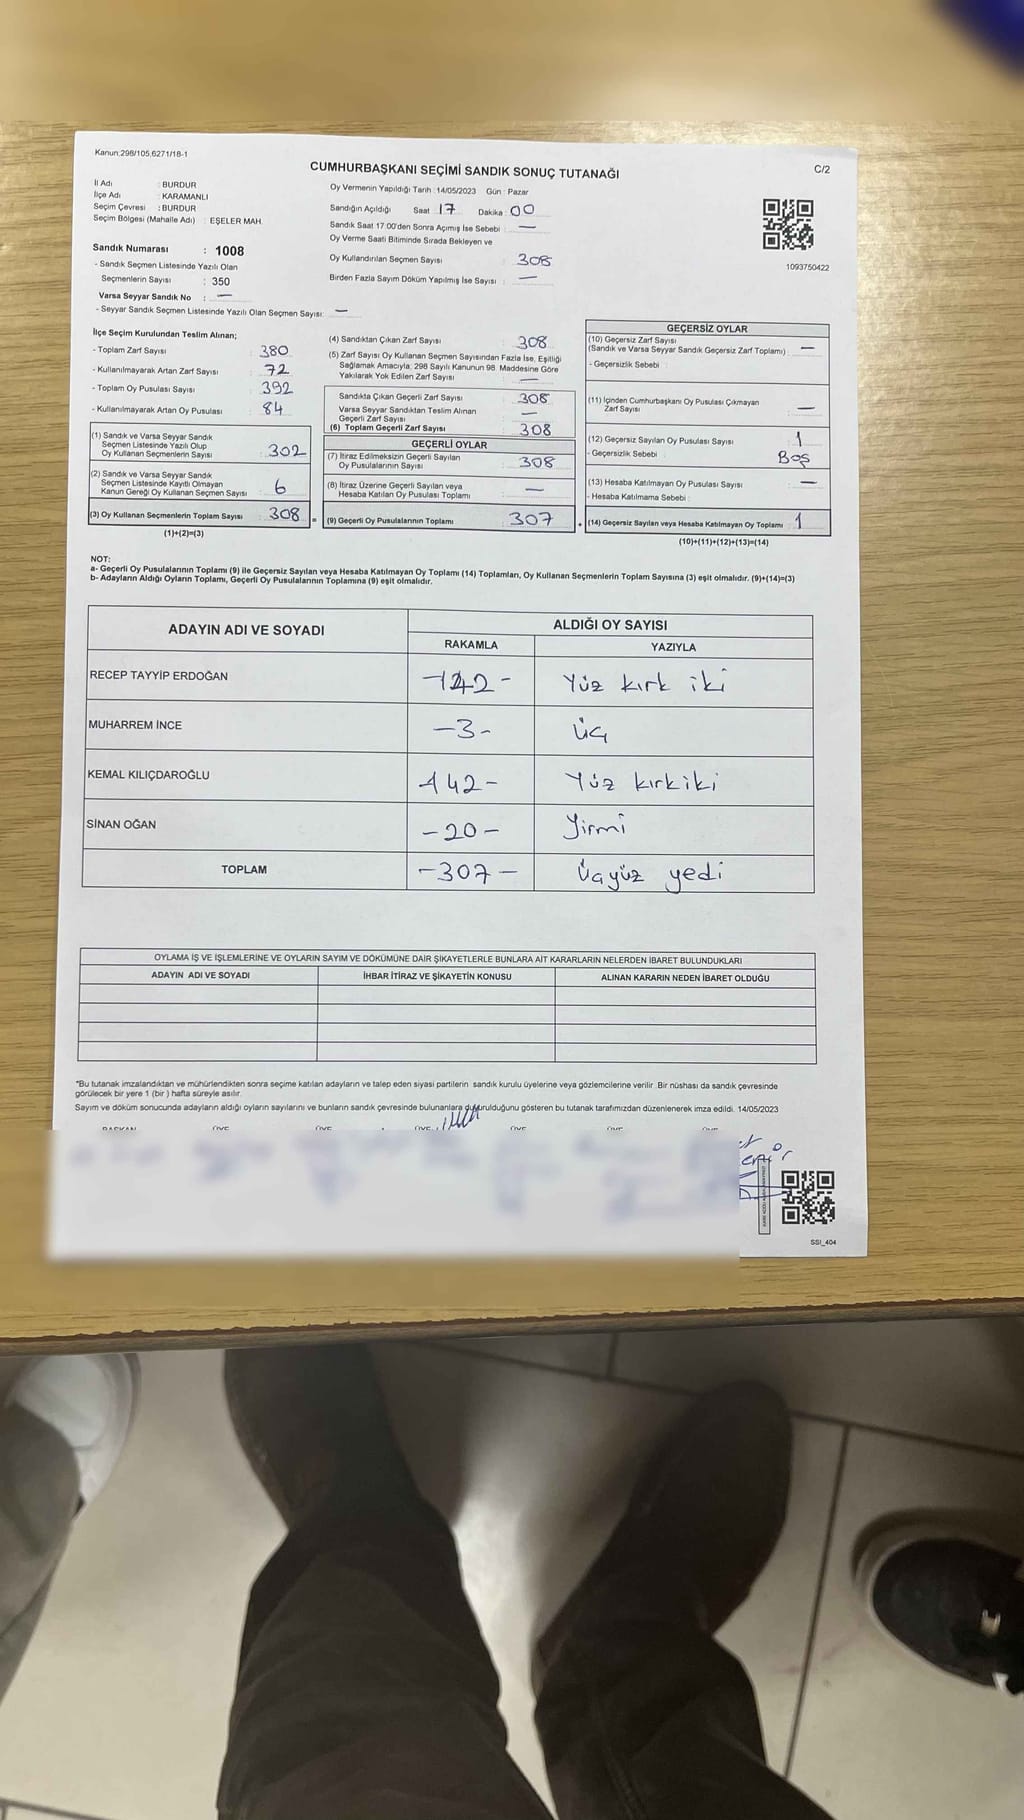 Kanun:298/105,6271/18-1
CUMHURBAŞKANI SEÇİMİ SANDIK SONUÇ TUTANAĞI
C/2
İl Adı : BURDUR
İlçe Adı : KARAMANLI
Seçim Çevresi : BURDUR
Seçim Bölgesi (Mahalle Adı) : EŞELER MAH.
Sandık Numarası : 1008
- Sandık Seçmen Listesinde Yazılı Olan
Seçmenlerin Sayısı : 350
Varsa Seyyar Sandık No : —
- Seyyar Sandık Seçmen Listesinde Yazılı Olan Seçmen Sayısı: —
Oy Vermenin Yapıldığı Tarih :14/05/2023 Gün : Pazar
Sandığın Açıldığı Saat 17 Dakika : 00
Sandık Saat 17:00'den Sonra Açımış İse Sebebi : —
Oy Verme Saati Bitiminde Sırada Bekleyen ve
Oy Kullandırılan Seçmen Sayısı : 308
Birden Fazla Sayım Döküm Yapılmış İse Sayısı : —
1093750422
İlçe Seçim Kurulundan Teslim Alınan;
- Toplam Zarf Sayısı : 380
- Kullanılmayarak Artan Zarf Sayısı : 72
- Toplam Oy Pusulası Sayısı : 392
- Kullanılmayarak Artan Oy Pusulası : 84
(1) Sandık ve Varsa Seyyar Sandık
Seçmen Listesinde Yazılı Olup
Oy Kullanan Seçmenlerin Sayısı : 302
(2) Sandık ve Varsa Seyyar Sandık
Seçmen Listesinde Kayıtlı Olmayan
Kanun Gereği Oy Kullanan Seçmen Sayısı : 6
(3) Oy Kullanan Seçmenlerin Toplam Sayısı : 308
(1)+(2)=(3)
(4) Sandıktan Çıkan Zarf Sayısı : 308
(5) Zarf Sayısı Oy Kullanan Seçmen Sayısından Fazla İse, Eşitliği
Sağlamak Amacıyla, 298 Sayılı Kanunun 98. Maddesine Göre
Yakılarak Yok Edilen Zarf Sayısı : —
Sandıkta Çıkan Geçerli Zarf Sayısı : 308
Varsa Seyyar Sandıktan Teslim Alınan
Geçerli Zarf Sayısı : —
(6) Toplam Geçerli Zarf Sayısı : 308
GEÇERLİ OYLAR
(7) İtiraz Edilmeksizin Geçerli Sayılan
Oy Pusulalarının Sayısı : 308
(8) İtiraz Üzerine Geçerli Sayılan veya
Hesaba Katılan Oy Pusulası Toplamı : —
= (9) Geçerli Oy Pusulalarının Toplamı : 307
GEÇERSİZ OYLAR
(10) Geçersiz Zarf Sayısı
(Sandık ve Varsa Seyyar Sandık Geçersiz Zarf Toplamı) : —
- Geçersizlik Sebebi :
(11) İçinden Cumhurbaşkanı Oy Pusulası Çıkmayan
Zarf Sayısı : —
(12) Geçersiz Sayılan Oy Pusulası Sayısı : 1
- Geçersizlik Sebebi : Boş
(13) Hesaba Katılmayan Oy Pusulası Sayısı : —
- Hesaba Katılmama Sebebi :
+ (14) Geçersiz Sayılan veya Hesaba Katılmayan Oy Toplamı : 1
(10)+(11)+(12)+(13)=(14)
NOT:
a- Geçerli Oy Pusulalarının Toplamı (9) ile Geçersiz Sayılan veya Hesaba Katılmayan Oy Toplamı (14) Toplamları, Oy Kullanan Seçmenlerin Toplam Sayısına (3) eşit olmalıdır. (9)+(14)=(3)
b- Adayların Aldığı Oyların Toplamı, Geçerli Oy Pusulalarının Toplamına (9) eşit olmalıdır.
ADAYIN ADI VE SOYADI
ALDIĞI OY SAYISI
RAKAMLA YAZIYLA
RECEP TAYYİP ERDOĞAN -142- Yüz kırk iki
MUHARREM İNCE -3- Üç
KEMAL KILIÇDAROĞLU -142- Yüz kırkiki
SİNAN OĞAN -20- Yirmi
TOPLAM -307- Üçyüz yedi
OYLAMA İŞ VE İŞLEMLERİNE VE OYLARIN SAYIM VE DÖKÜMÜNE DAİR ŞİKAYETLERLE BUNLARA AİT KARARLARIN NELERDEN İBARET BULUNDUKLARI
ADAYIN ADI VE SOYADI İHBAR İTİRAZ VE ŞİKAYETİN KONUSU ALINAN KARARIN NEDEN İBARET OLDUĞU
*Bu tutanak imzalandıktan ve mühürlendikten sonra seçime katılan adayların ve talep eden siyasi partilerin sandık kurulu üyelerine veya gözlemcilerine verilir. Bir nüshası da sandık çevresinde
görülecek bir yere 1 (bir ) hafta süreyle asılır.
Sayım ve döküm sonucunda adayların aldığı oyların sayılarını ve bunların sandık çevresinde bulunanlara duyurulduğunu gösteren bu tutanak tarafımızdan düzenlenerek imza edildi. 14/05/2023
BAŞKAN ÜYE ÜYE ÜYE ÜYE ÜYE ÜYE
SSI_404